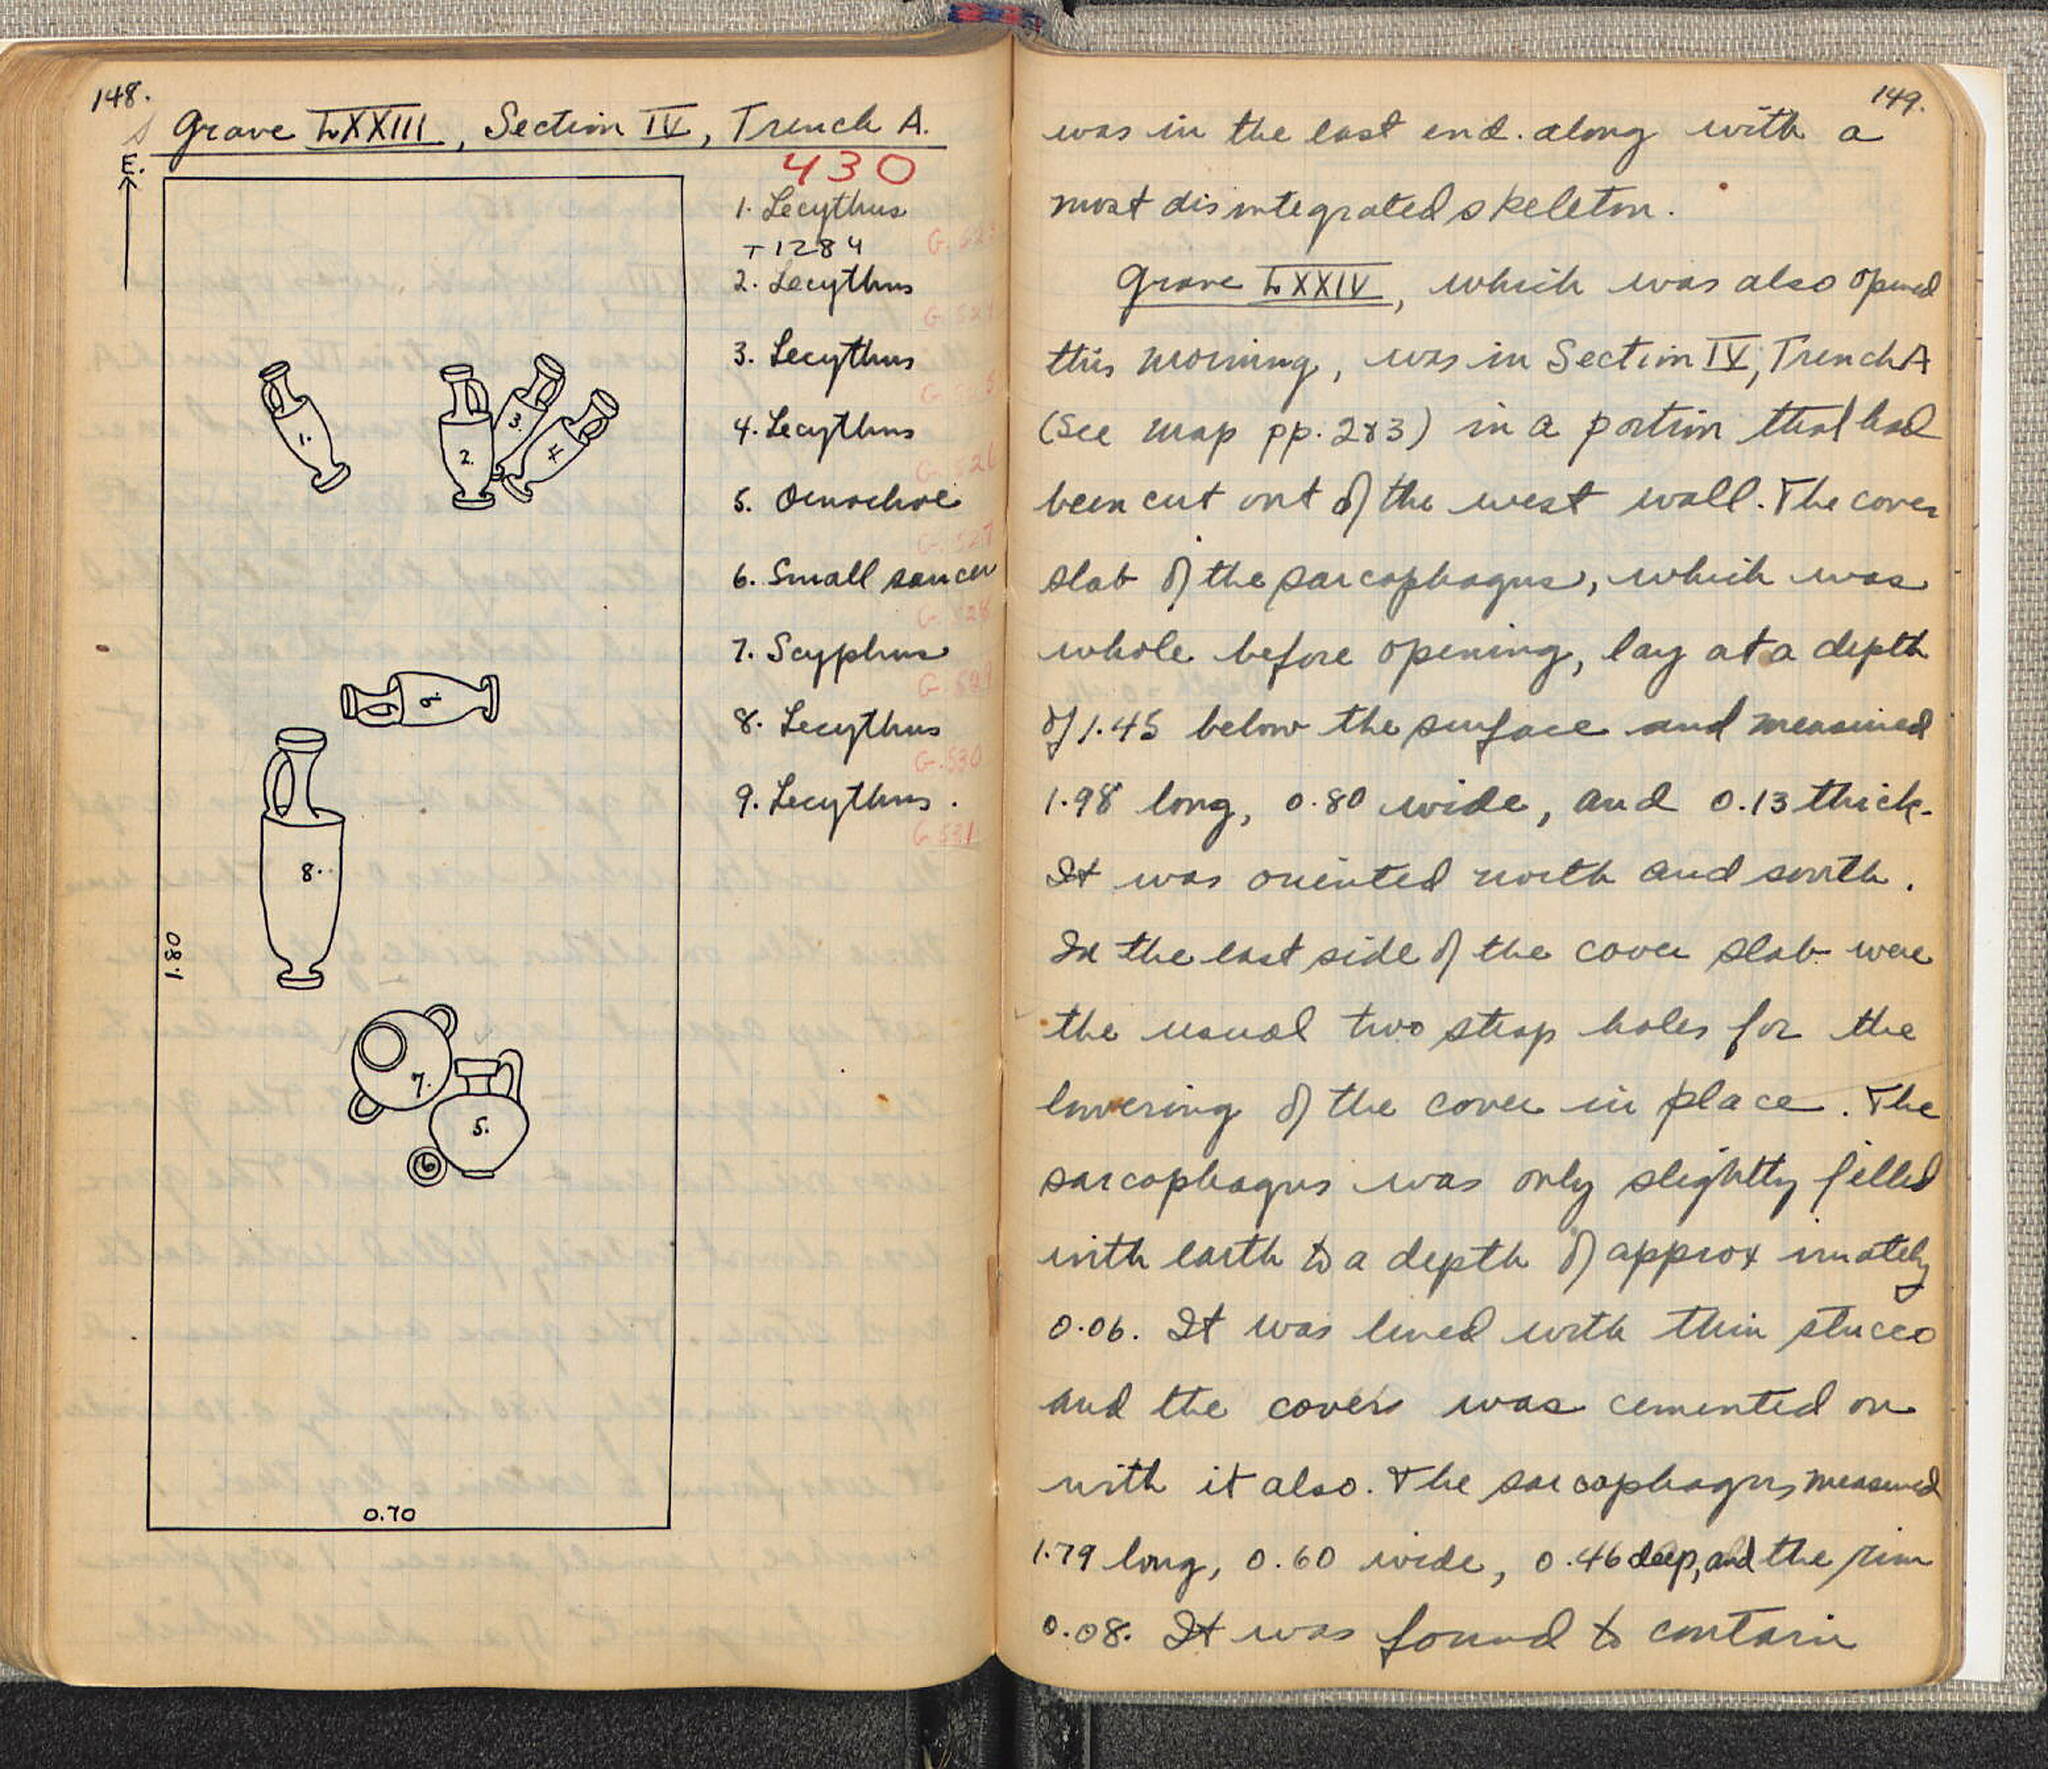 148.
Grave LXXIII, Section IV, Trench A.
E.
430
1. Lecythus
T 1284
2. Lecythus
3. Lecythus
4. Lecythus
G. 526
5. Oenochoe
G. 527
6. Small saucer
G. 528
7. Scyphus
G. 529
8. Lecythus
G. 530
9. Lecythus.
G 531
1.
2.
3.
4.
9.
8.
7.
5.
6
1.80
0.70
149.
was in the east end. along with a
most disintegrated skeleton.
Grave LXXIV, which was also opened
this morning, was in Section IV, Trench A
(See map pp. 2&3) in a portion that had
been cut out of the west wall. The cover
slab of the sarcophagus, which was
whole before opening, lay at a depth
of 1.45 below the surface and measured
1.98 long, 0.80 wide, and 0.13 thick.
It was oriented north and south.
In the east side of the cover slab were
the usual two strap holes for the
lowering of the cover in place. The
sarcophagus was only slightly filled
with earth to a depth of approximately
0.06. It was lined with thin stucco
and the cover was cemented on
with it also. The sarcophagus measured
1.79 long, 0.60 wide, 0.46 deep, and the rim
0.08. It was found to contain